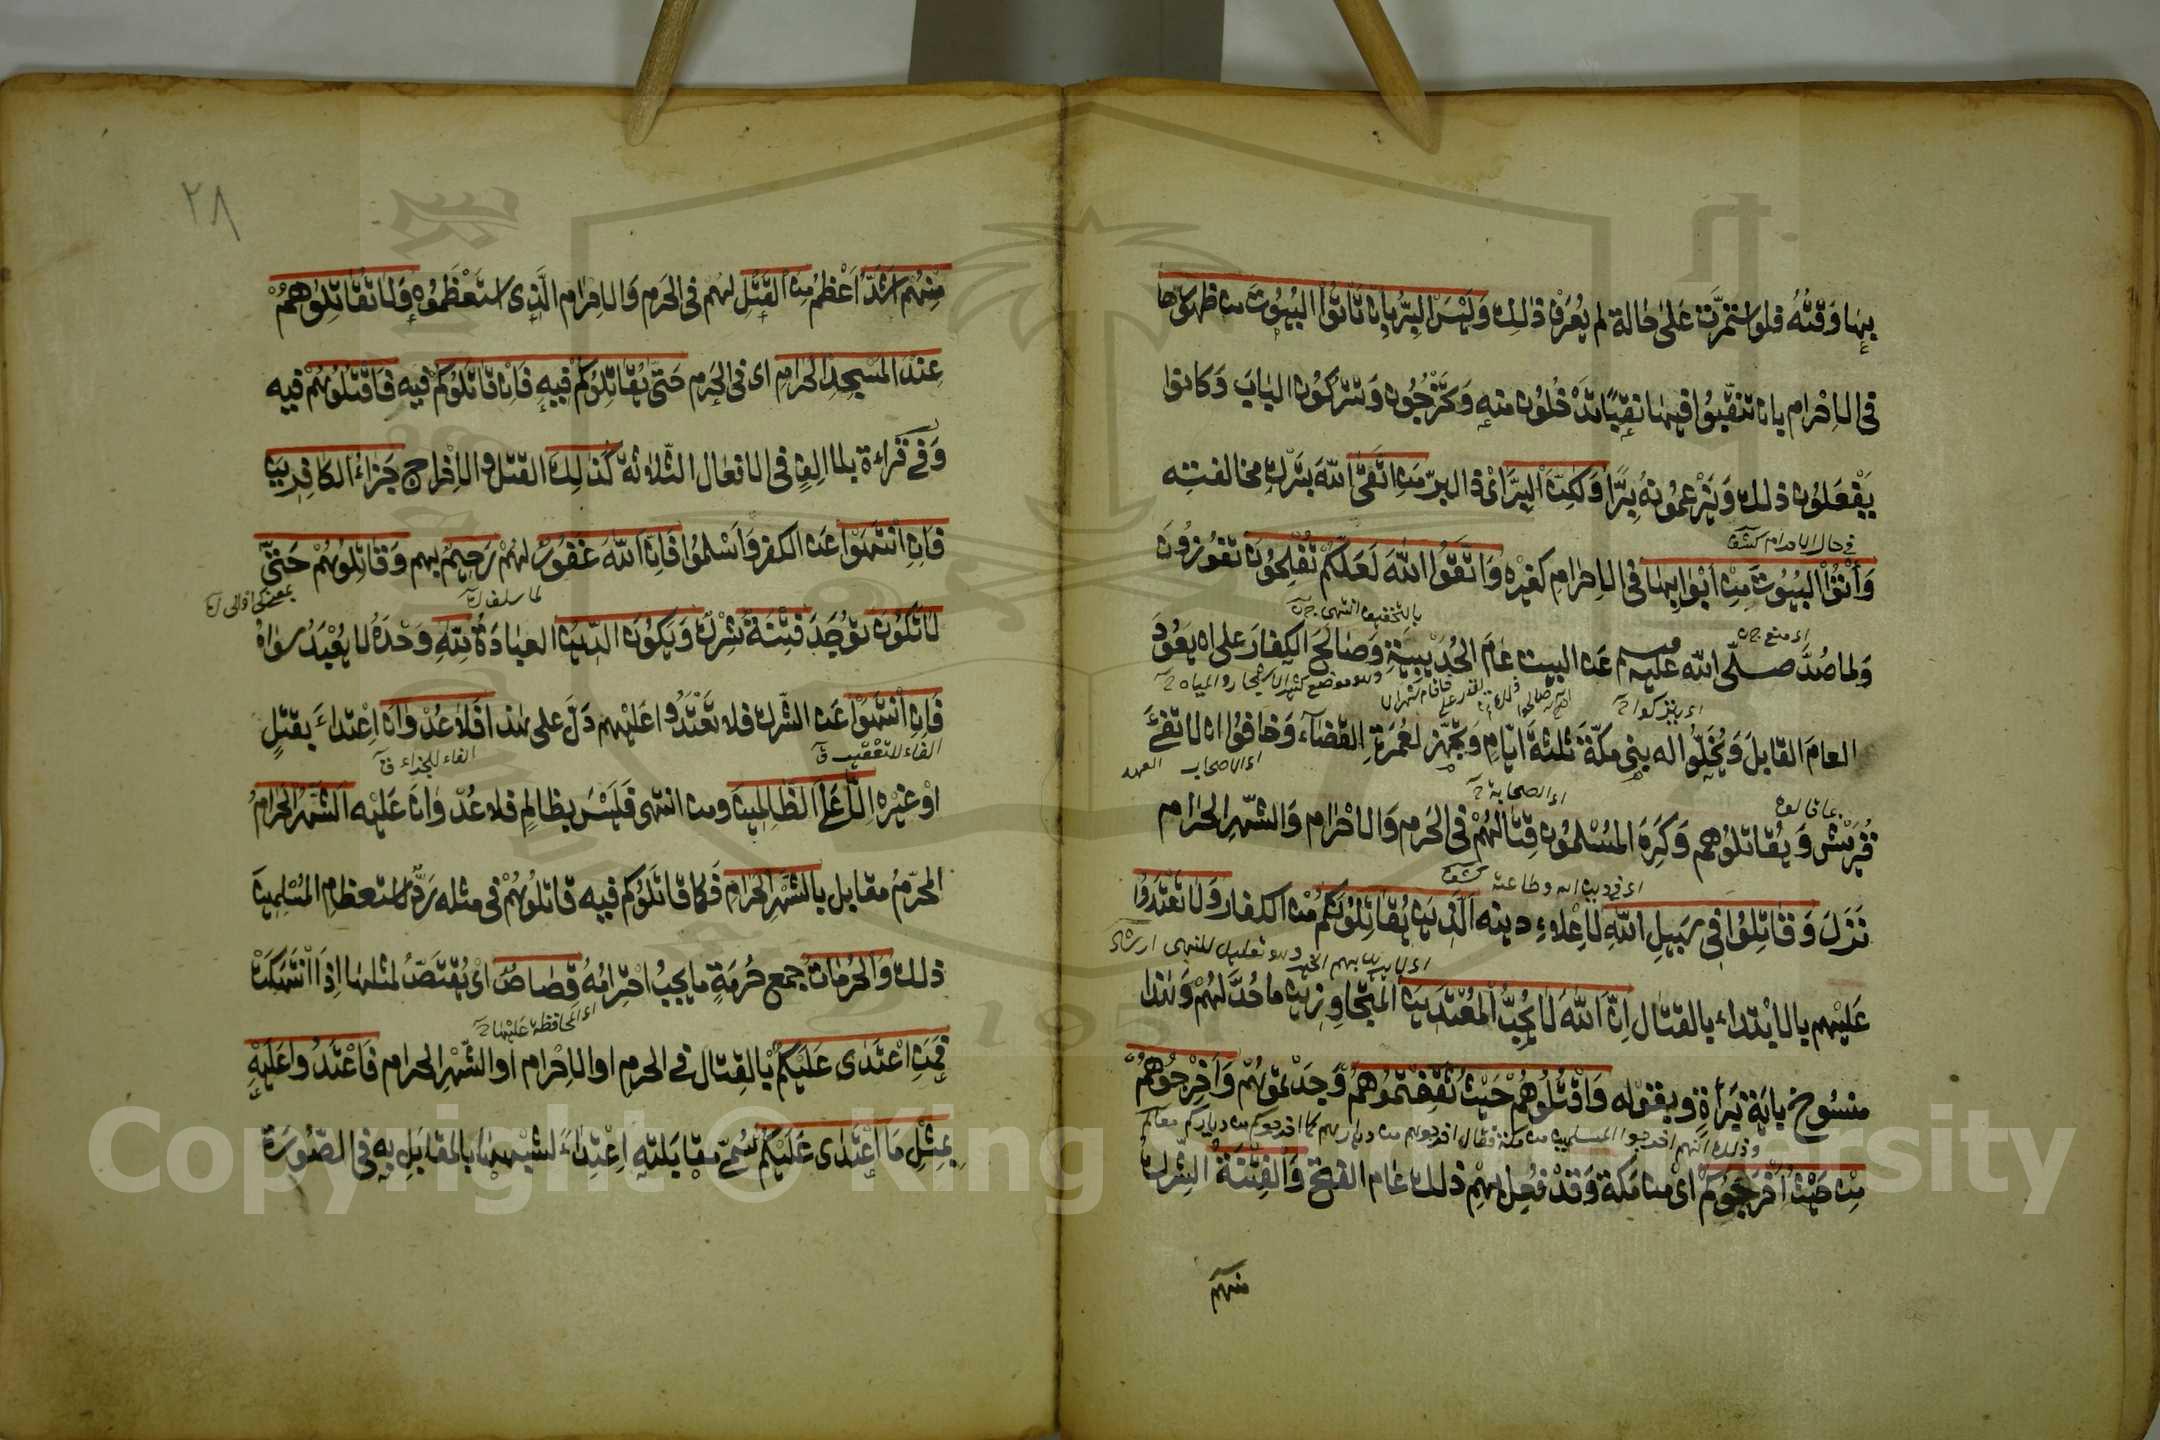 بها وقته فلو استمرت على حالة لم يعرف ذلك وليس البر بان تأتوا البيوت من ظهورها
في الاحرام بان تنقبوا فيها نقبا تدخلون منه وتخرجون وتتركون الباب وكانوا
يفعلون ذلك ويزعمونه برا ولكن البر اي ذا البر من اتقى الله بترك مخالفته
في حال الاحرام كشف
وأتوا البيوت من ابوابها في الاحرام كغيره واتقوا الله لعلكم تفلحون تفوزون
بالتخفيف انتهى
اي منع
ولما صد صلى الله عليه وسلم عن البيت عام الحديبية وصالح الكفار على ان يعود
وهو موضع كثير الاشجار والمياه
اي يتركوا
العام القابل ويخلوا له بني مكة ثلثة ايام وتجهز لعمرة القضاء وخافوا ان لا تفي
اي الاصحاب العهد
اي الصحابة
قريش ويقاتلوهم وكره المسلمون قتالهم في الحرم والاحرام والشهر الحرام
اي في دين الله وطاعته كشف
نزل وقاتلوا في سبيل الله لاعلاء دينه الذين يقاتلونكم من الكفار ولا تعتدوا
اي لا يريد بهم الخير وهو تعليل للنهي ارشاد
عليهم بالابتداء بالقتال ان الله لا يحب المعتدين المتجاوزين ما حد لهم وهذا
منسوخ باية براءة وبقوله واقتلوهم حيث ثقفتموهم وجدتموهم واخرجوهم
وذلك انهم اخرجوا المسلمين من مكة فقال اخرجوهم من ديارهم كما اخرجوكم من دياركم معالم
من حيث اخرجوكم اي من مكة وقد فعل بهم ذلك عام الفتح والفتنة الشرك
منهم
٢٨
منهم اشد اعظم من القتل لهم في الحرم والاحرام الذي استعظموه ولا تقاتلوهم
عند المسجد الحرام اي في الحرم حتى يقاتلوكم فيه فان قاتلوكم فيه فاقتلوهم فيه
وفي قراءة بلا الف في الافعال الثلاثة كذلك القتل والاخراج جزاء الكافرين
فان انتهوا عن الكفر واسلموا فان الله غفور لهم رحيم بهم وقاتلوهم حتى
لما سلف
بمعنى كي او الى
لا تكون توجد فتنة شرك ويكون الدين العبادة لله وحده لا يعبد سواه
فان انتهوا عن الشرك فلا تعتدوا عليهم دل على هذا فلا عدوان اعتداء بقتل
الفاء للتعقيب
الفاء للجزاء
او غيره الا على الظالمين ومن انتهى فليس بظالم فلا عدوان عليه الشهر الحرام
المحرم مقابل بالشهر الحرام فكما قاتلوكم فيه قاتلوهم في مثله رد لاستعظام المسلمين
ذلك والحرمات جمع حرمة ما يجب احترامه قصاص اي يقتص لمثلها اذا انتهكت
اي المحافظة عليها
فمن اعتدى عليكم بالقتال في الحرم او الاحرام او الشهر الحرام فاعتدوا عليه
بمثل ما اعتدى عليكم سمى مقابلته اعتداء لشبهها بالمقابل به في الصورة
Copyright © King
ersity
195